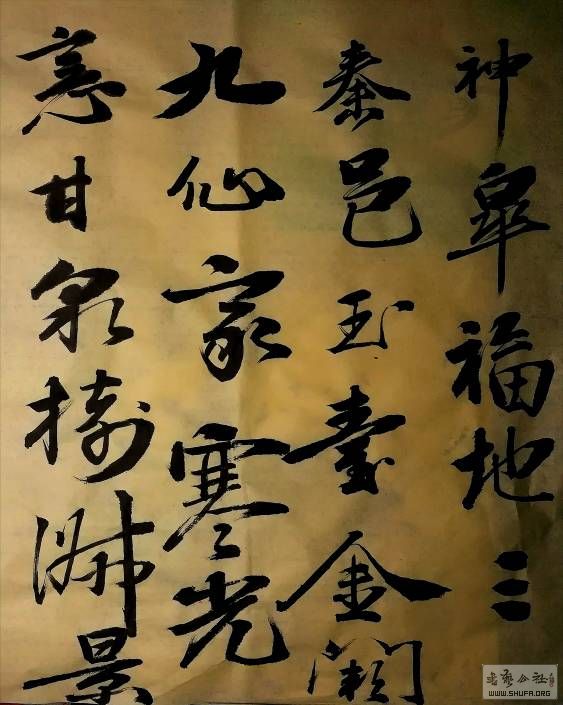 神皋福地三
秦邑玉臺金闕
九仙家寒光
恋甘泉樹淑景
书艺公社
WWW.SHUFA.ORG